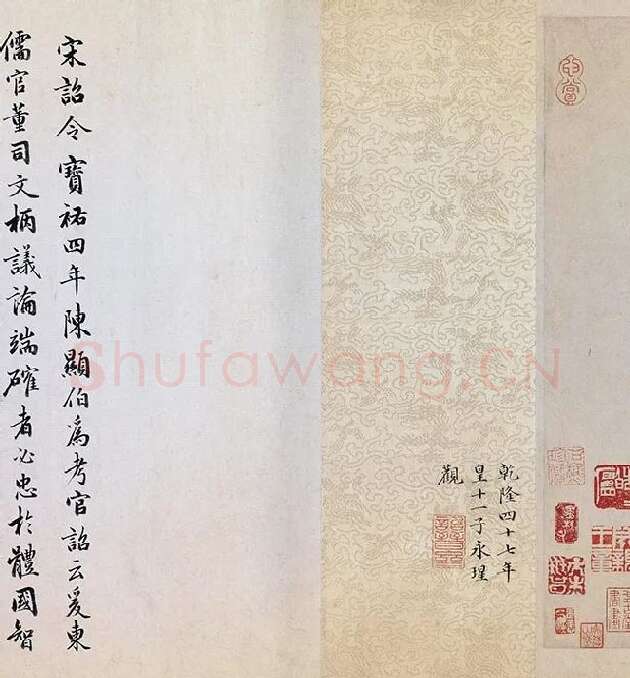 乾隆四十七年
皇十一子永瑆
觀
宋詔令寶祐四年陳顯伯為考官詔云爰東
儒官董司文柄議論端確者必忠於體國智
Shufawang.CN